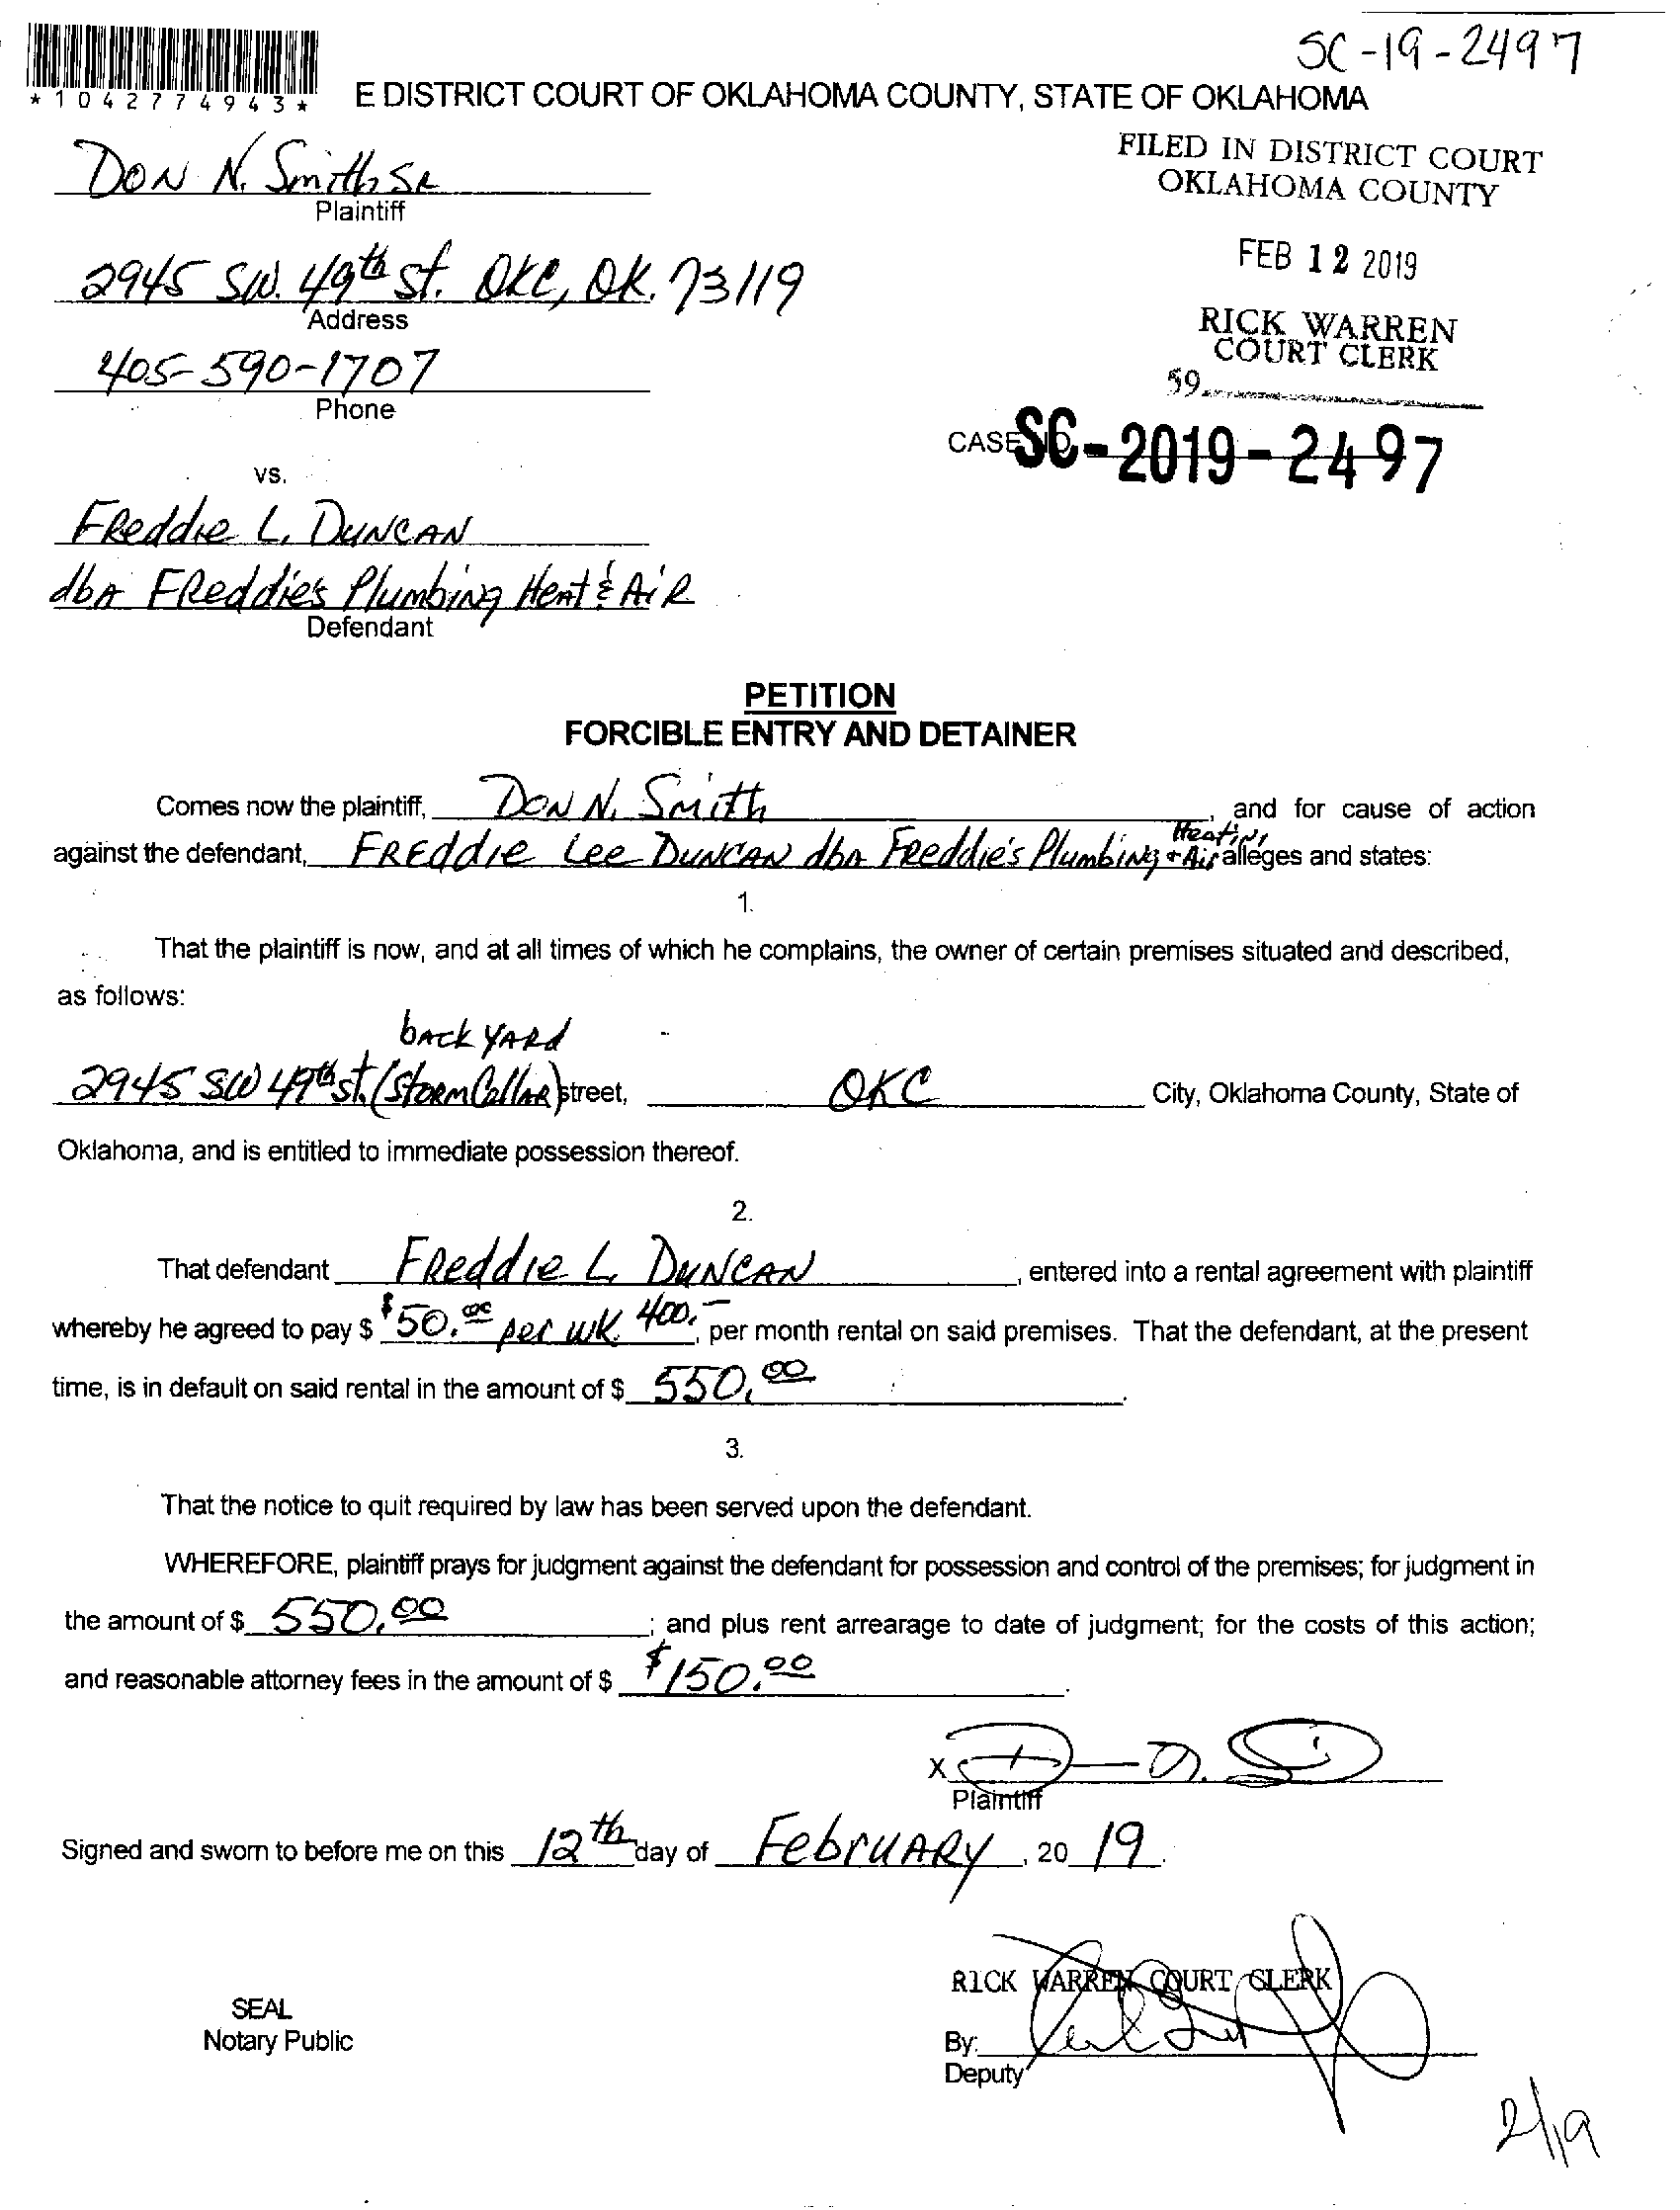 SC-19-2497
*1042774943*
E DISTRICT COURT OF OKLAHOMA COUNTY, STATE OF OKLAHOMA
FILED IN DISTRICT COURT
OKLAHOMA COUNTY
DON N. Smith SR
Plaintiff
FEB 12 2019
2945 SW. 49th st. OKC, OK. 73119
Address
RICK WARREN
COURT CLERK
405-590-1707
Phone
59
CASE SC-2019-2497
vs.
FReddie L. DUNCAN
dbA FReddie's Plumbing HeAt & AiR
Defendant
PETITION
FORCIBLE ENTRY AND DETAINER
Comes now the plaintiff, DON N. Smith, and for cause of action
Heating
against the defendant, FREddie Lee DUNCAN dbA FReddie's PlumbiNg + Air alleges and states:
1.
That the plaintiff is now, and at all times of which he complains, the owner of certain premises situated and described,
as follows:
bAck YARd
2945 SW 49th st. (StoRm CellAR) street, OKC City, Oklahoma County, State of
Oklahoma, and is entitled to immediate possession thereof.
2.
That defendant FReddie L DUNCAN, entered into a rental agreement with plaintiff
whereby he agreed to pay $ $50.00 per wk. 400.- per month rental on said premises. That the defendant, at the present
time, is in default on said rental in the amount of $ 550.00.
3.
That the notice to quit required by law has been served upon the defendant.
WHEREFORE, plaintiff prays for judgment against the defendant for possession and control of the premises; for judgment in
the amount of $ 550.00; and plus rent arrearage to date of judgment; for the costs of this action;
and reasonable attorney fees in the amount of $ $150.00.
X
Plaintiff
Signed and sworn to before me on this 12th day of FebruARy, 2019.
RICK WARREN COURT CLERK
SEAL
Notary Public
By:
Deputy
2/19